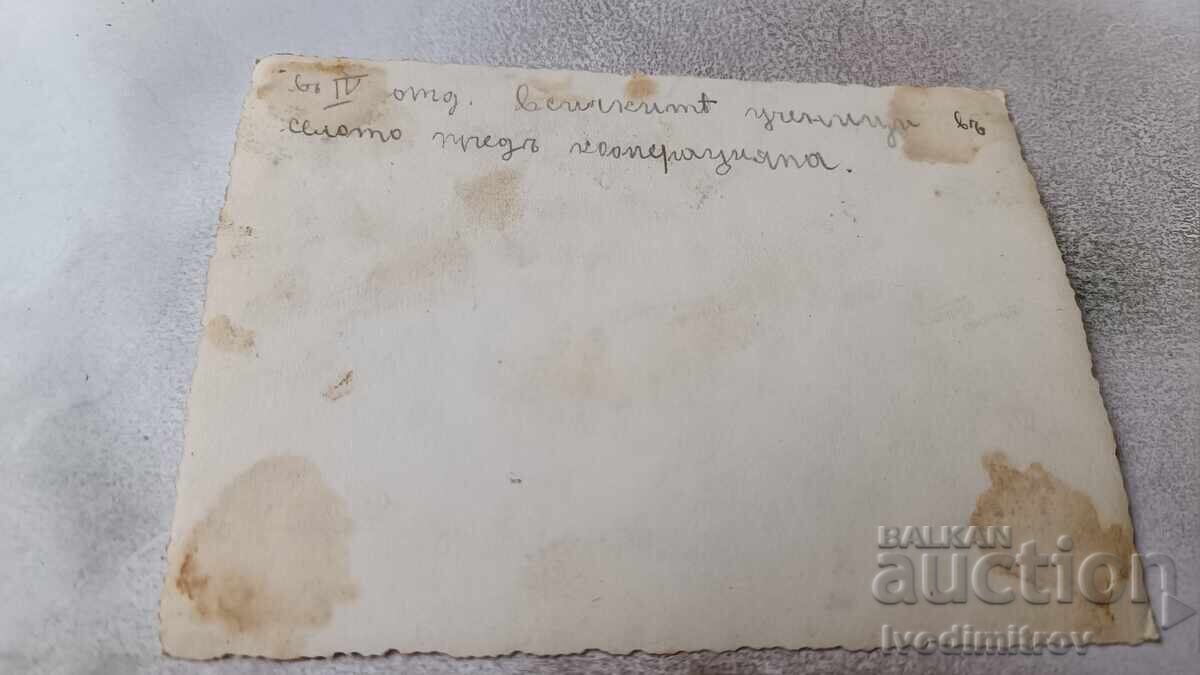 въ IV отд. всичкитѣ ученици въ
селото предъ кооперацията.
BALKAN
auction
Ivedimitrov